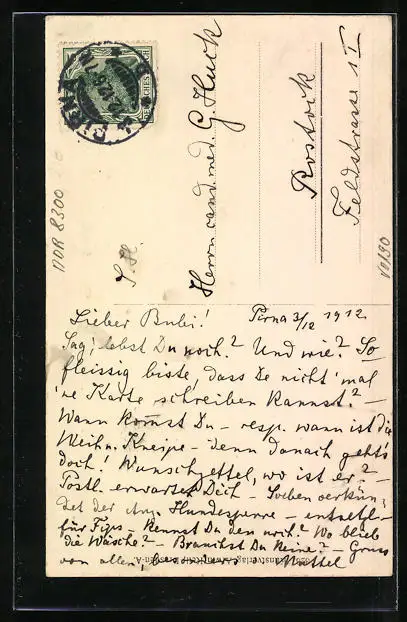 DEUTSCHES REICH
S. H.
Herrn cand. med. G. Huck
Rostock
Feldstrasse 1 I
DDR 8300
VO/90
Lieber Bubi! Pirna 3/12 1912
Sag', lebst Du noch? Und wie? So
fleissig biste, dass De nicht 'mal
'ne Karte schreiben kannst? –
Wann kommst Du – resp. wann ist die
Weihn. Kneipe – denn danach geht's
doch! Wunschzettel, wo ist er? –
Postl. erwartet Dich – Soeben verkün-
det der Anz. Hundesperre – entsetzl.
für Fips – Kennst Du den noch? Wo blieb
die Wäsche? – Brauchst Du keine? – Gruss
von allen, besonders v. Muttel